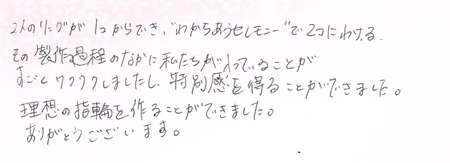 2人のリングが1コからでき、"わかちあうセレモニー"で2コにわける。
その製作過程のなかに私たちが入っていることが
すごくワクワクしましたし、特別感を得ることができました。
理想の指輪を作ることができました。
ありがとうございます。